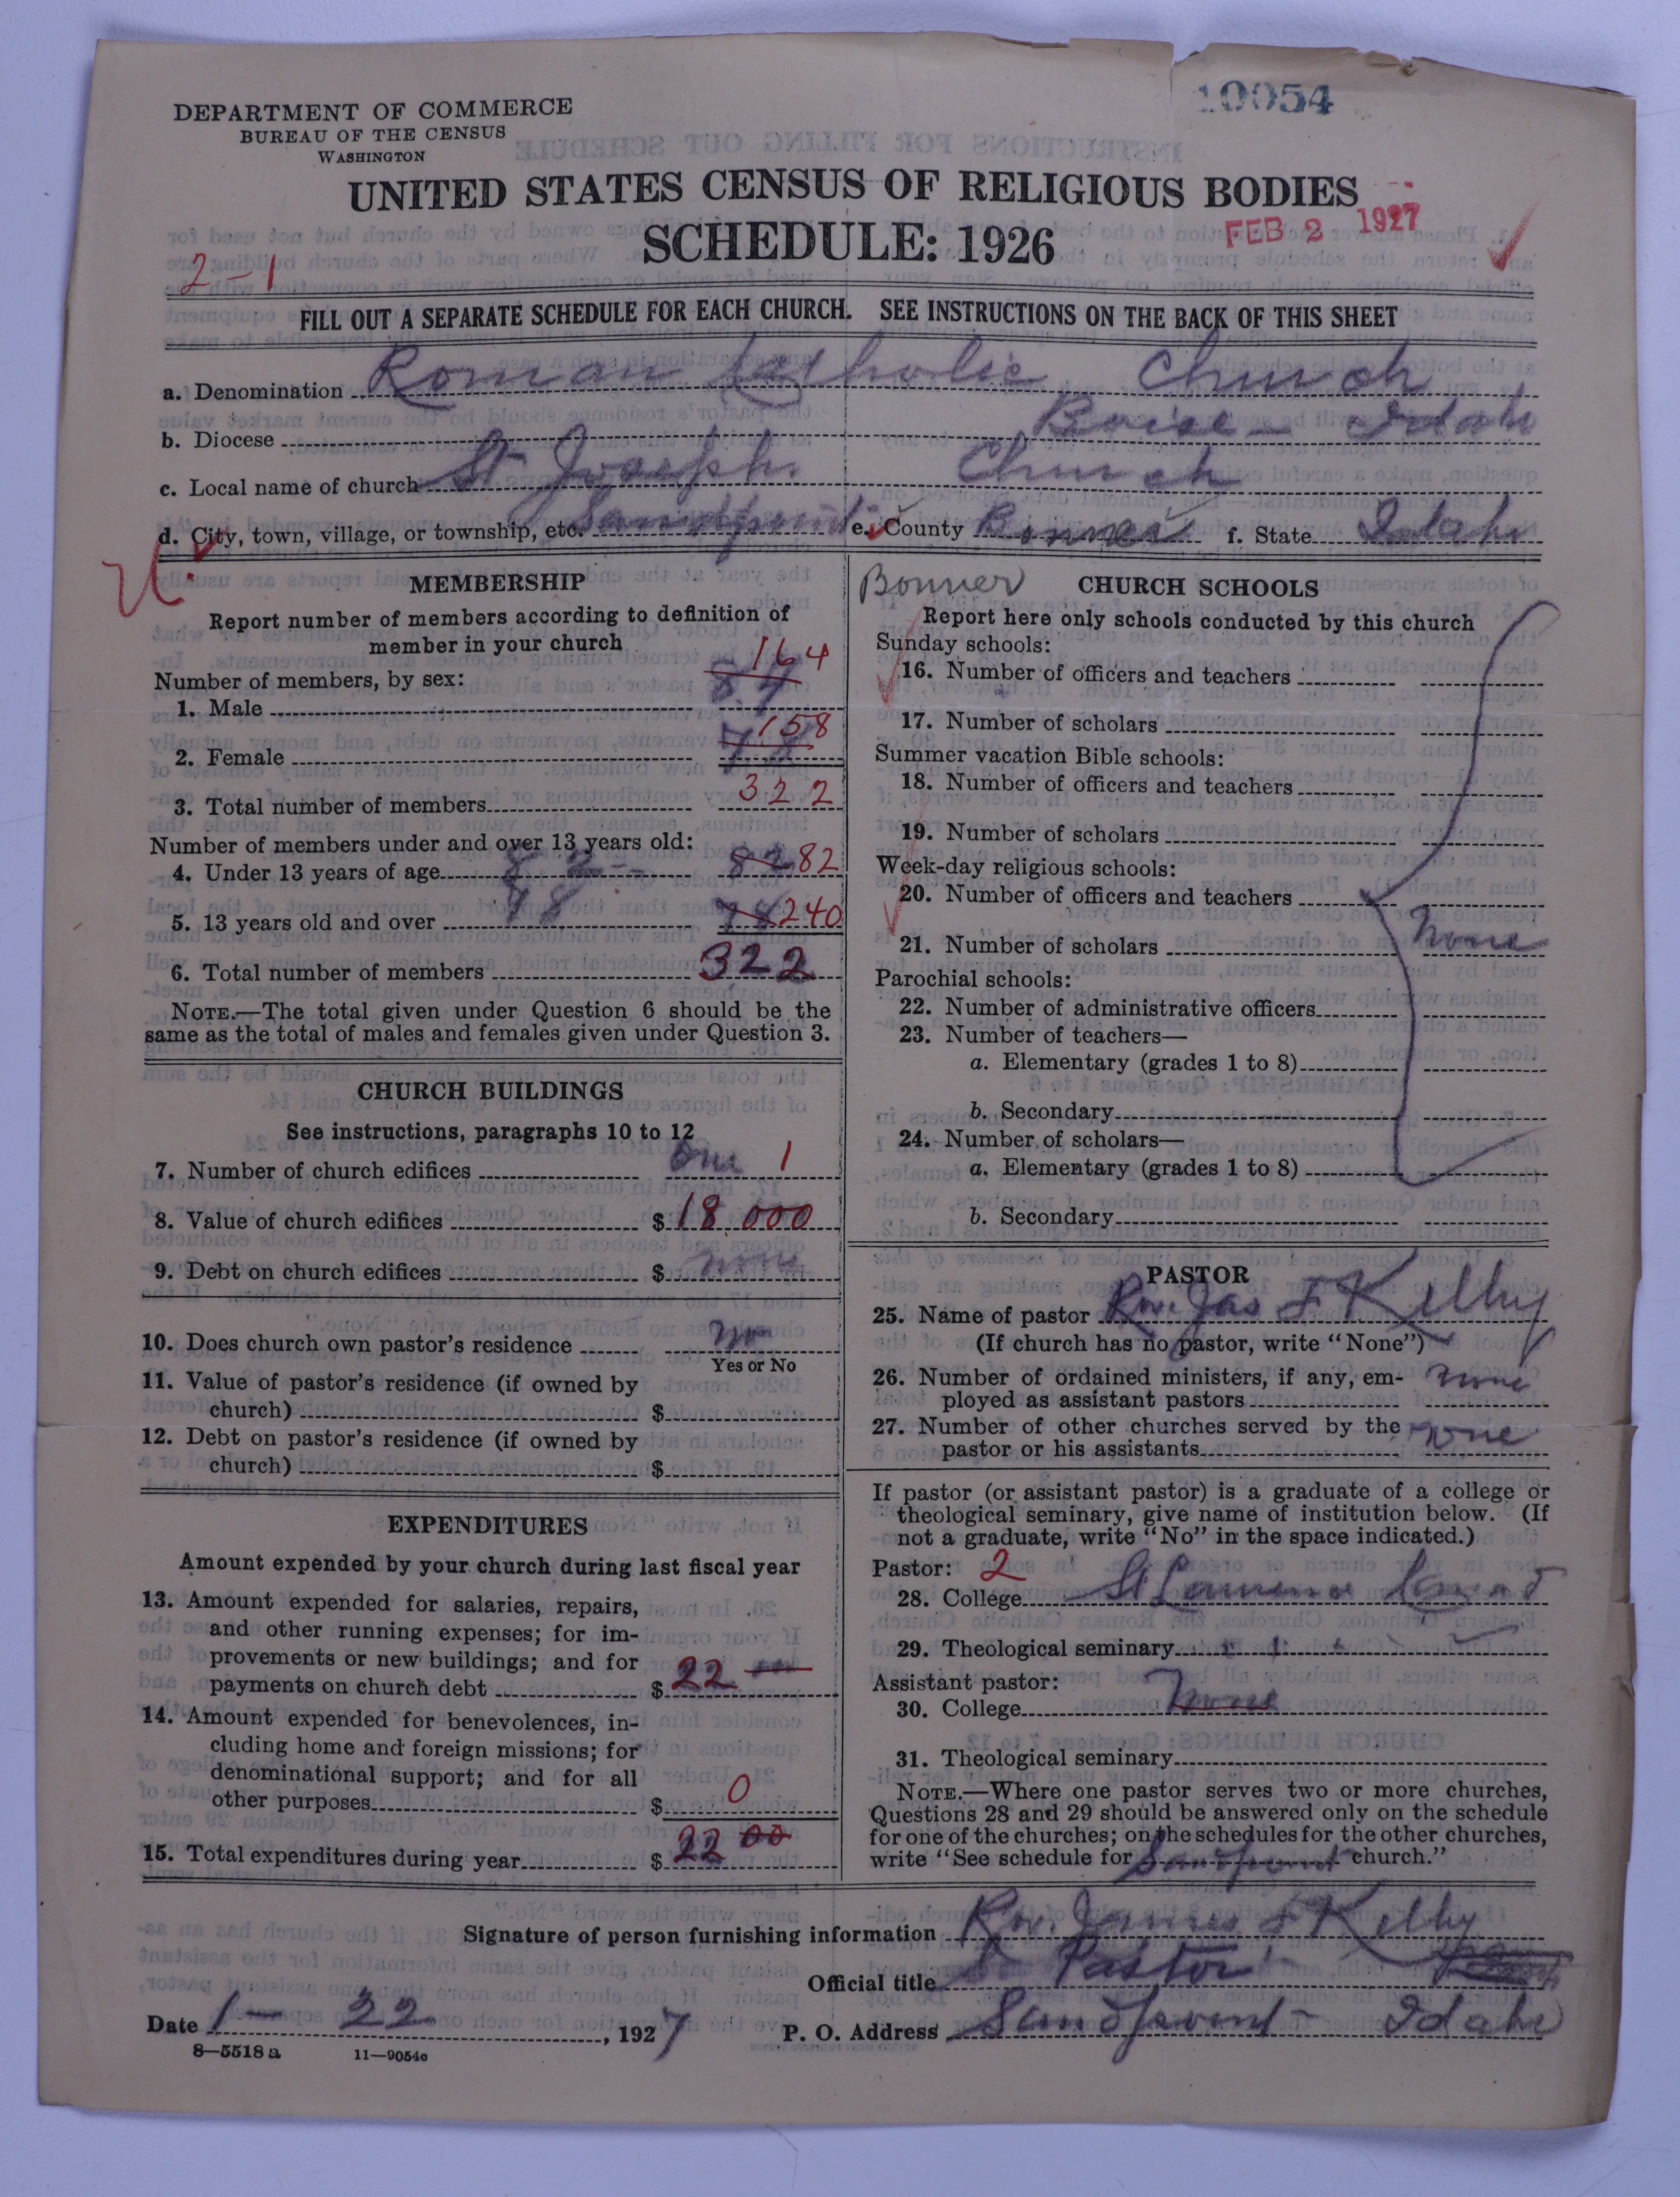 10054
DEPARTMENT OF COMMERCE
BUREAU OF THE CENSUS
WASHINGTON
UNITED STATES CENSUS OF RELIGIOUS BODIES
SCHEDULE: 1926
FEB 2 1927
2-1
FILL OUT A SEPARATE SCHEDULE FOR EACH CHURCH. SEE INSTRUCTIONS ON THE BACK OF THIS SHEET
a. Denomination Roman Catholic Church
b. Diocese Boise - Idaho
c. Local name of church St Joseph. Church
d. City, town, village, or township, etc. Sandpoint e. County Bonner f. State Idaho
MEMBERSHIP
Report number of members according to definition of
member in your church
Number of members, by sex:
164
1. Male
158
2. Female
3. Total number of members 322
Number of members under and over 13 years old:
4. Under 13 years of age 82 82 82
5. 13 years old and over 78 78 240
6. Total number of members 322
NOTE.—The total given under Question 6 should be the
same as the total of males and females given under Question 3.
CHURCH BUILDINGS
See instructions, paragraphs 10 to 12
7. Number of church edifices One 1
8. Value of church edifices $ 18.000
9. Debt on church edifices $ none
10. Does church own pastor's residence no
Yes or No
11. Value of pastor's residence (if owned by
church) $
12. Debt on pastor's residence (if owned by
church) $
EXPENDITURES
Amount expended by your church during last fiscal year
13. Amount expended for salaries, repairs,
and other running expenses; for im-
provements or new buildings; and for
payments on church debt $ 22
14. Amount expended for benevolences, in-
cluding home and foreign missions; for
denominational support; and for all
other purposes $ 0
15. Total expenditures during year $ 22 00
Bonner
CHURCH SCHOOLS
Report here only schools conducted by this church
Sunday schools:
16. Number of officers and teachers
17. Number of scholars
Summer vacation Bible schools:
18. Number of officers and teachers
19. Number of scholars
Week-day religious schools:
20. Number of officers and teachers
21. Number of scholars None
Parochial schools:
22. Number of administrative officers
23. Number of teachers—
a. Elementary (grades 1 to 8)
b. Secondary
24. Number of scholars—
a. Elementary (grades 1 to 8)
b. Secondary
PASTOR
25. Name of pastor Rev. Jas F Kelly
(If church has no pastor, write "None")
26. Number of ordained ministers, if any, em-
ployed as assistant pastors none
27. Number of other churches served by the
pastor or his assistants none
If pastor (or assistant pastor) is a graduate of a college or
theological seminary, give name of institution below. (If
not a graduate, write "No" in the space indicated.)
Pastor: 2
28. College St
29. Theological seminary
Assistant pastor:
30. College None
31. Theological seminary
NOTE.—Where one pastor serves two or more churches,
Questions 28 and 29 should be answered only on the schedule
for one of the churches; on the schedules for the other churches,
write "See schedule for Sandpoint church."
Signature of person furnishing information Rev. James F Kelly
Official title Pastor
Date 1 - 22, 1927 P. O. Address Sandpoint - Idaho
8—5518a 11—9054c